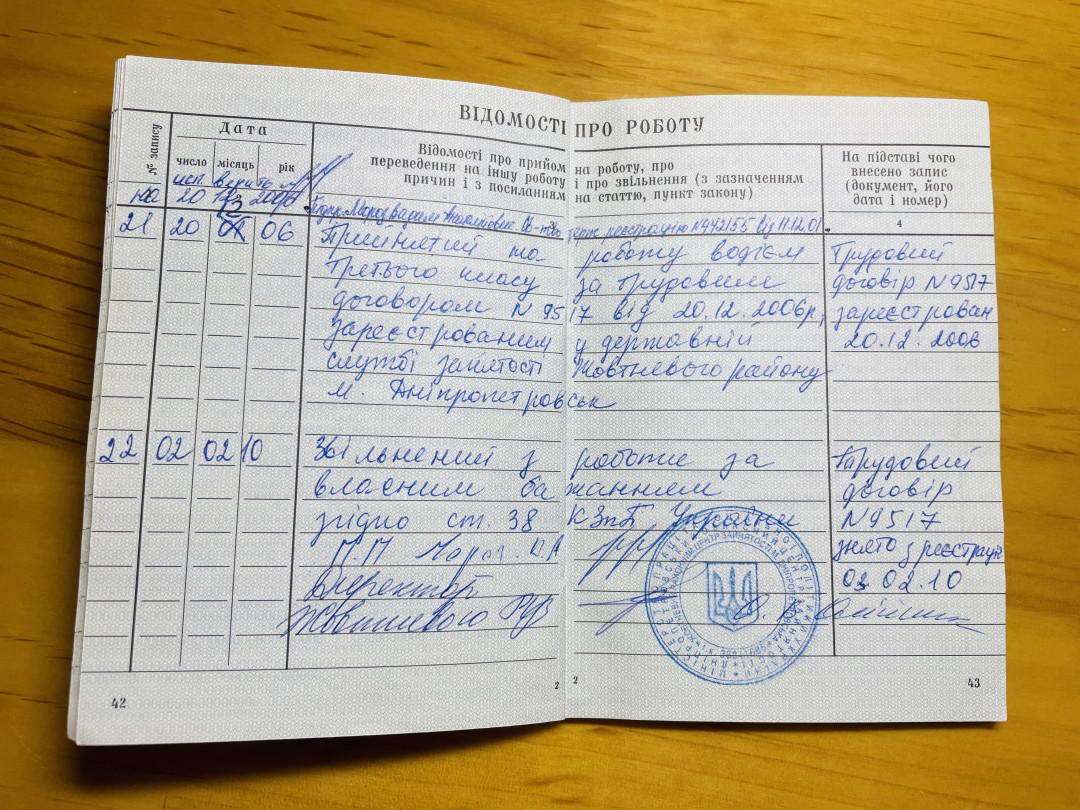 ВІДОМОСТІ ПРО РОБОТУ
№ запису
Дата
число місяць рік
Відомості про прийом на роботу, про
переведення на іншу роботу і про звільнення (з зазначенням
причин і з посиланням на статтю, пункт закону)
На підставі чого
внесено запис
(документ, його
дата і номер)
4
на 20 12 2006
Мороз Вадим реєстрацію N442155 від 11.12.01
21 20 06 Прийнятий на роботу водієм Трудовий
третього класу за трудовим договір N 9517
договором N 9517 від 20.12.2006р, зареєстрован
зареєстрованим у державній 20.12.2006
службі зайнятості Жовтневого району
м. Дніпропетровськ
22 02 02 10 Звільнений з роботи за Трудовий
власним бажанням договір
згідно ст. 38 КЗпП України N9517
П.П Мороз В.А знято з реєстрації
Директор 02.10
Жовтневого РЦЗ
42
2
2
43